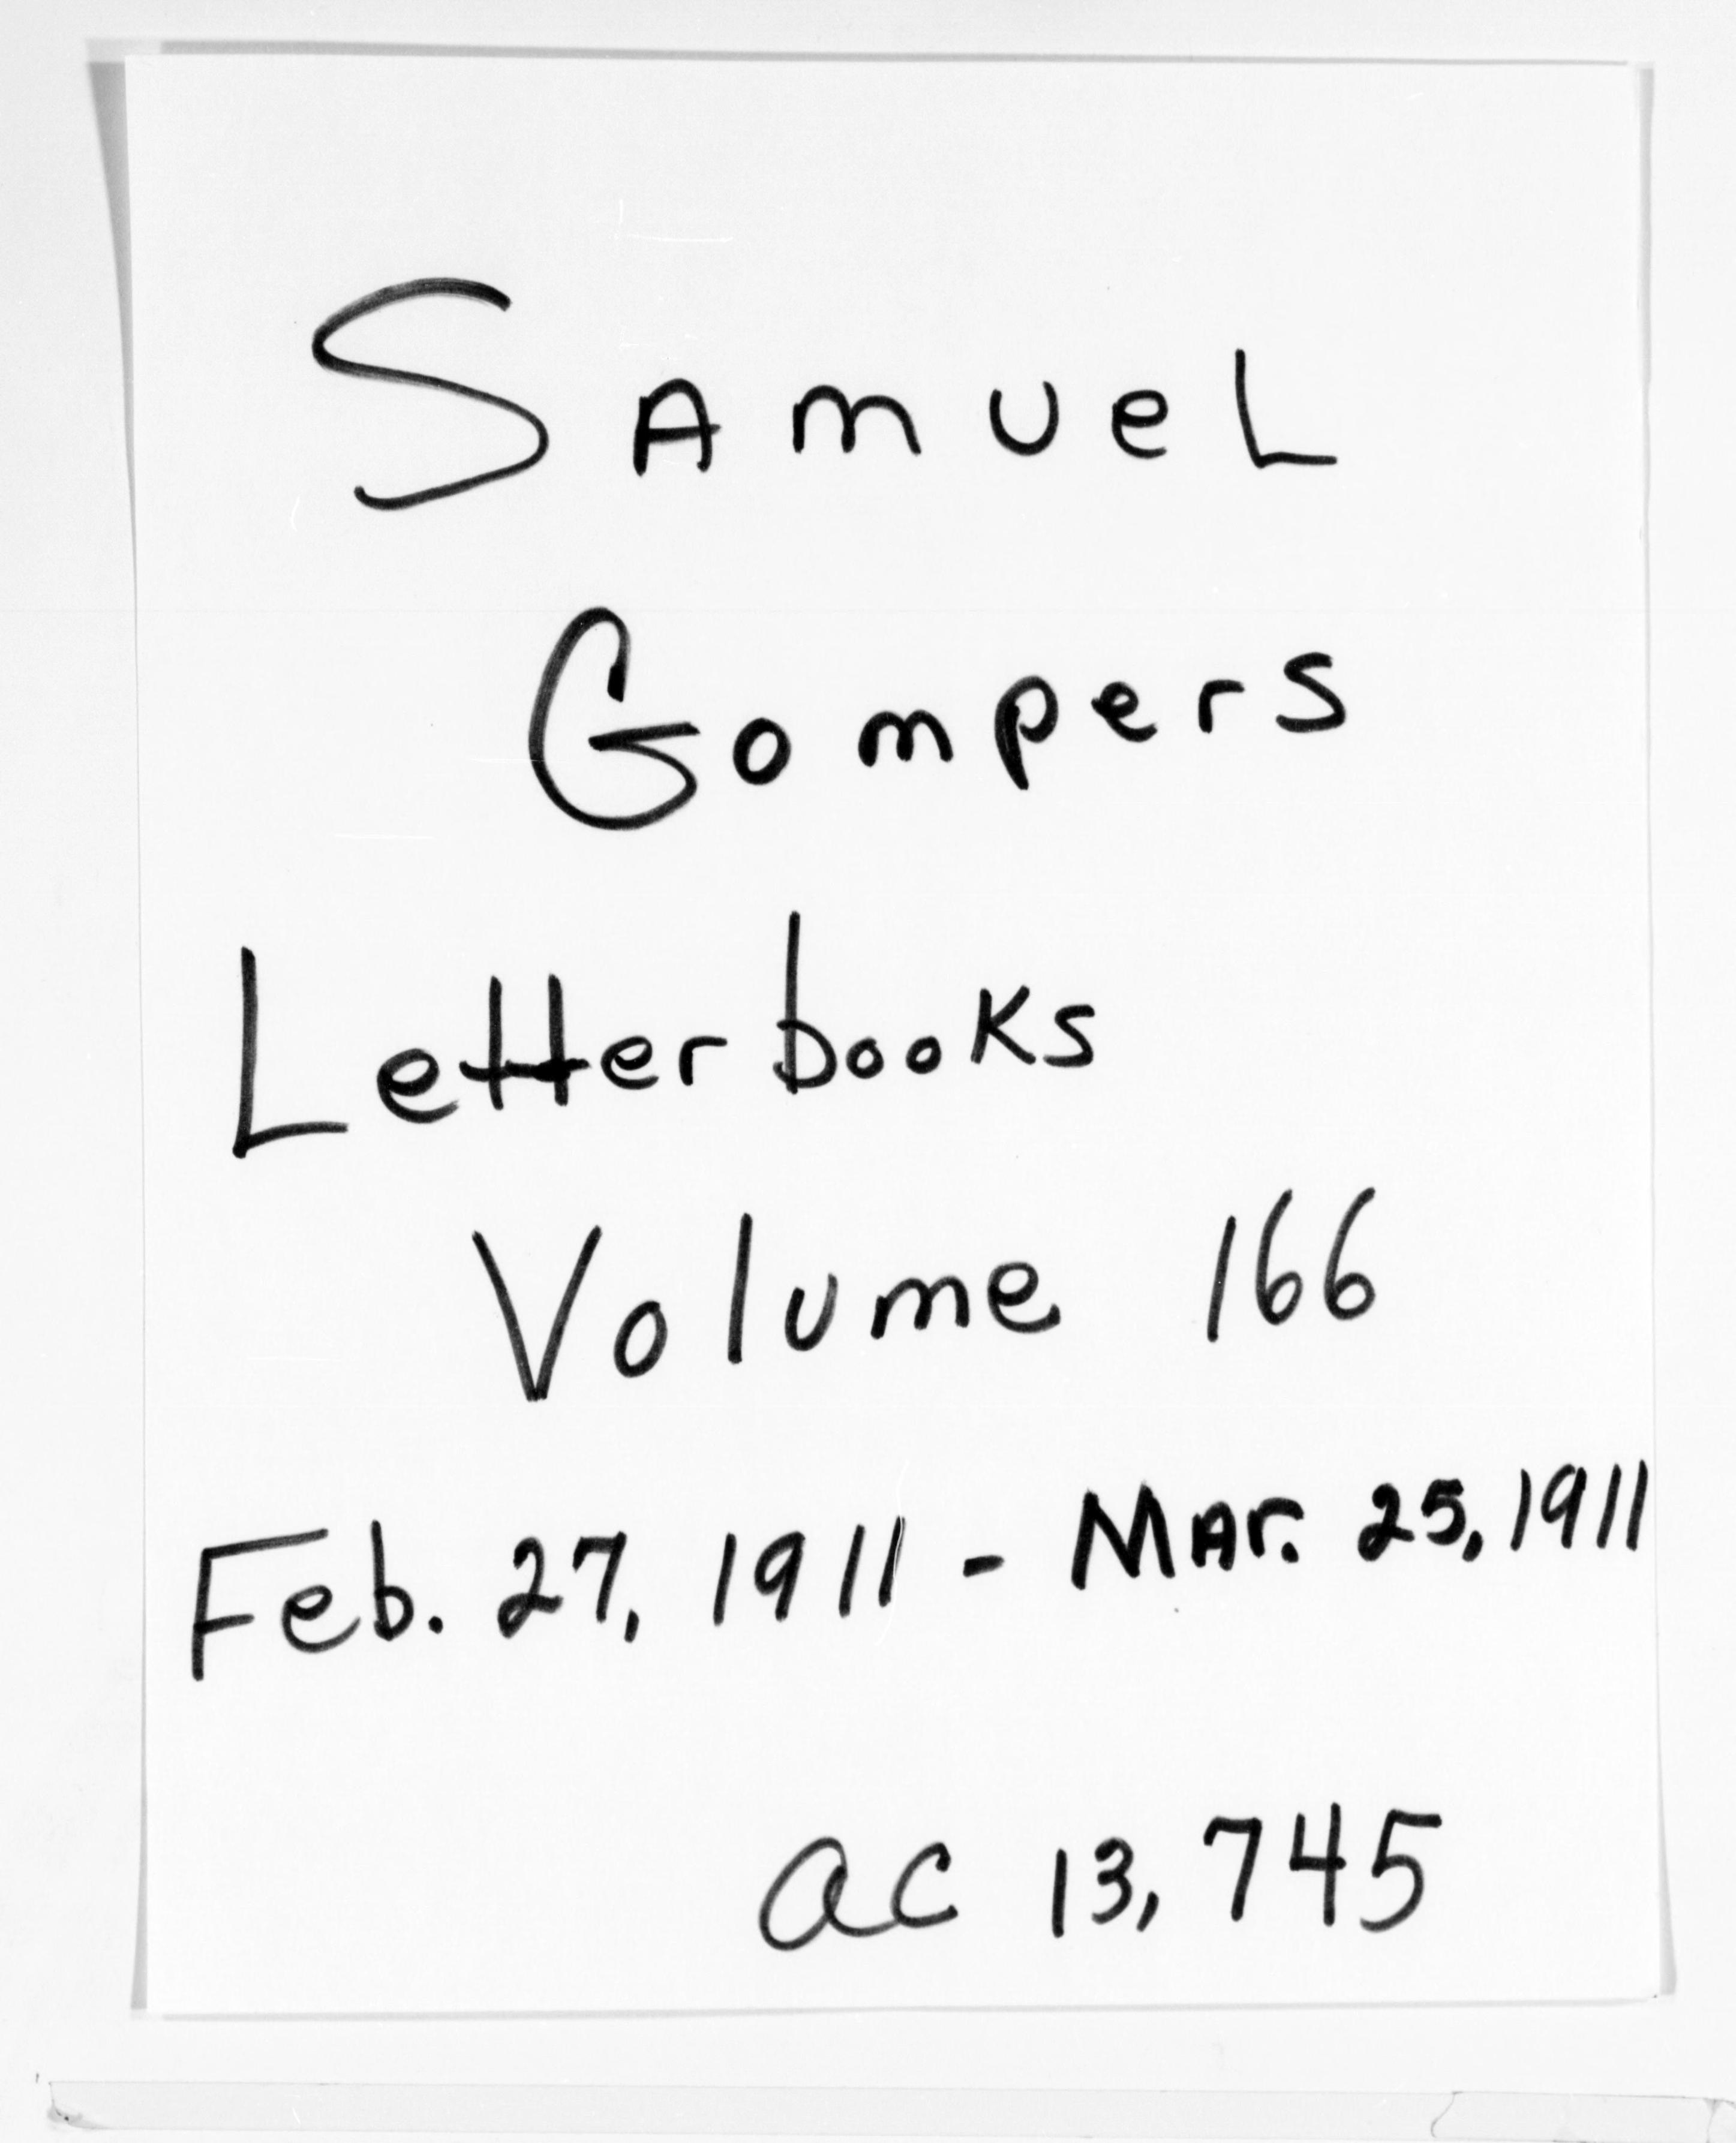 Samuel
Gompers
Letterbooks
Volume 166
Feb. 27, 1911 - Mar. 25, 1911
ac 13,745